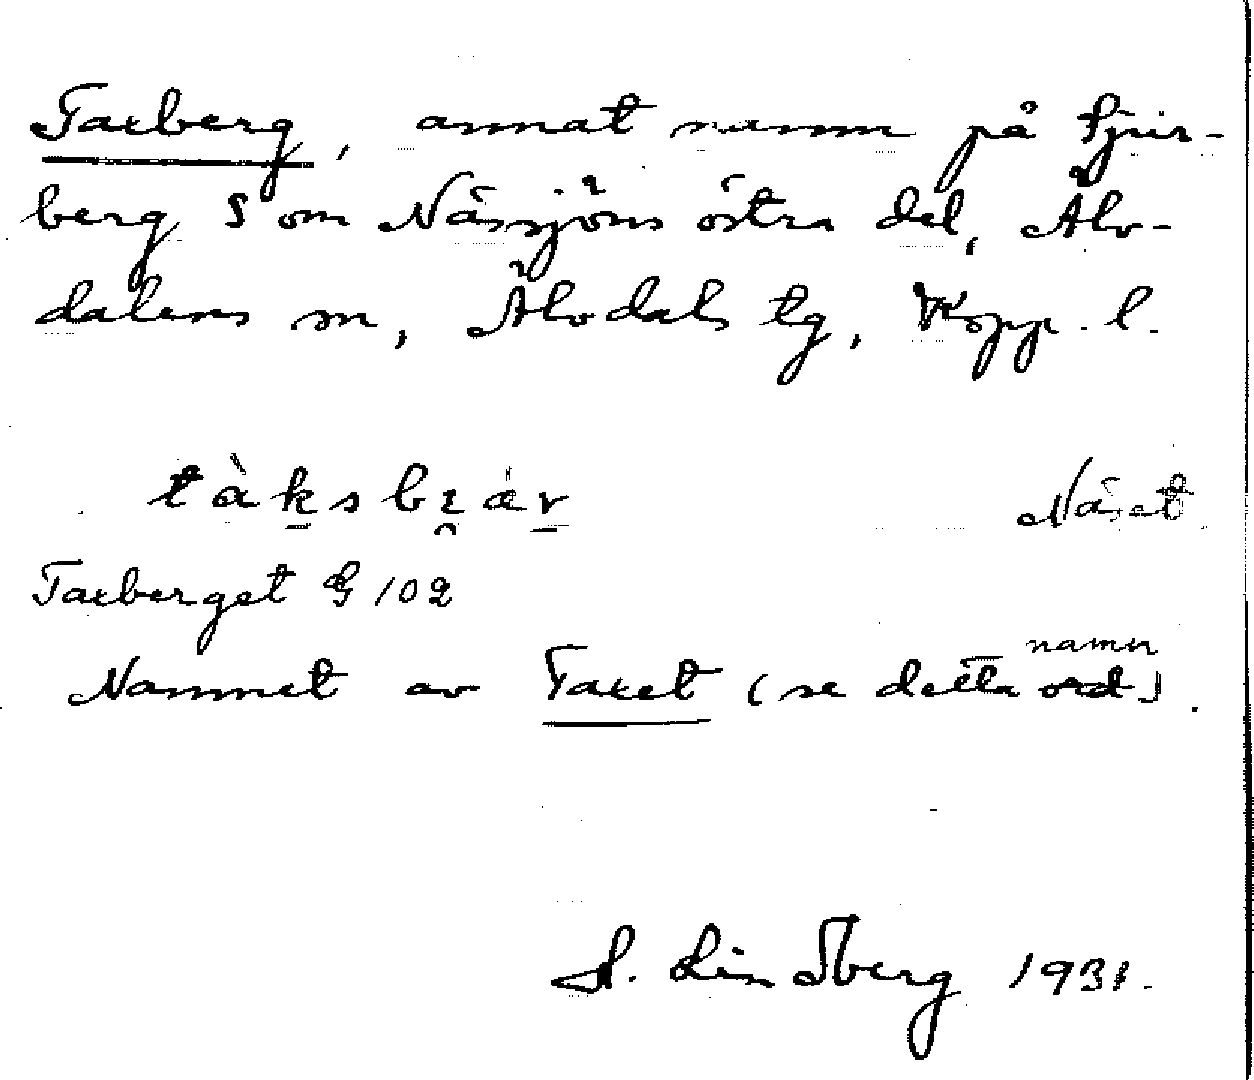 Taxberg, annat namn på Spir-
berg S om Nässjöns östra del, Älv-
dalens sn, Älvdals tg, Kopp. l.
tàksbi̯àr Näset
Taxberget G 102
Namnet av Taxet (se detta namn ord).
K. Lindberg 1931.